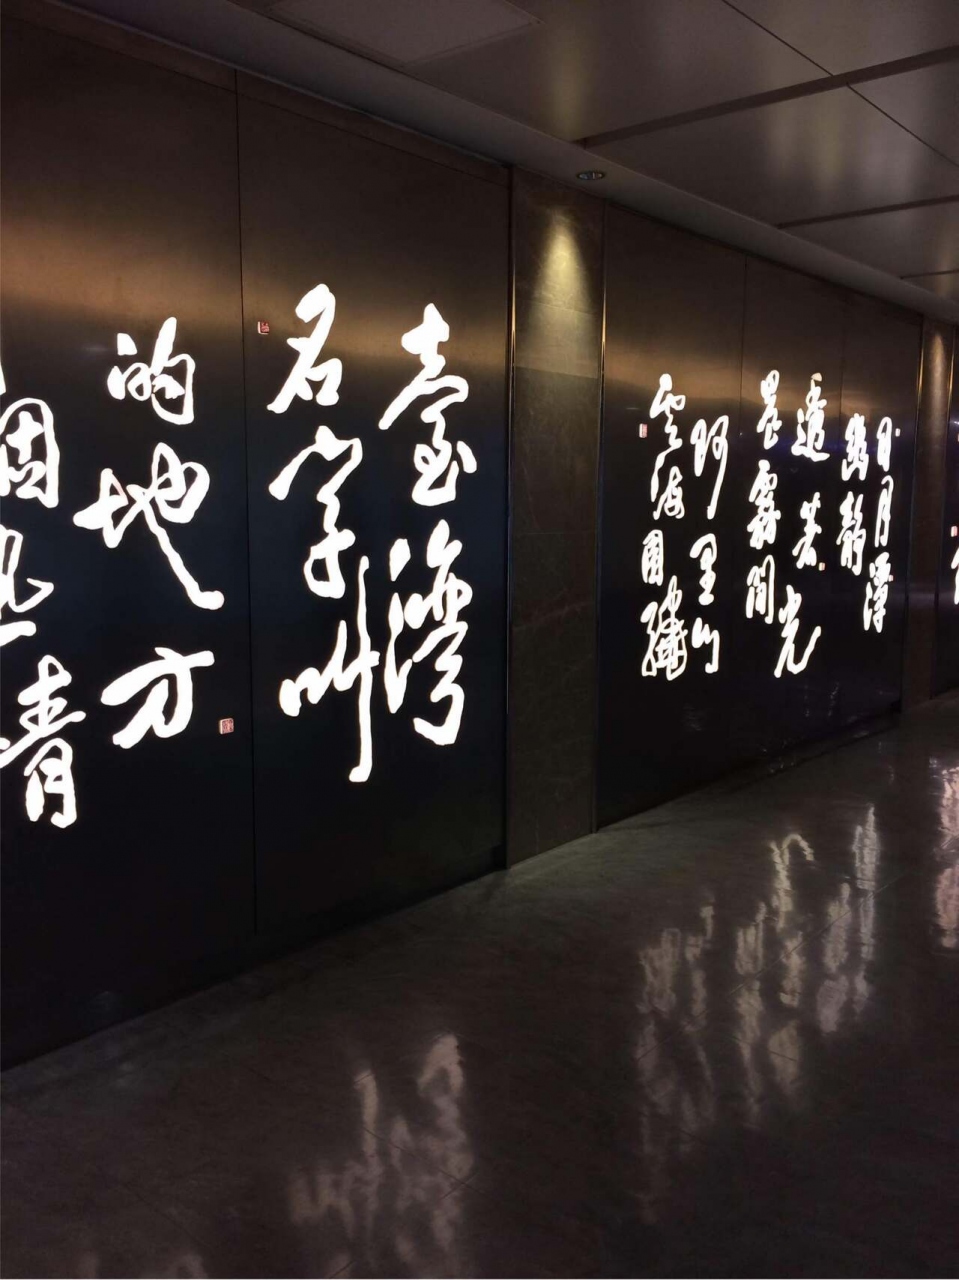 日月潭
幽靜
透著光
晨霧間
阿里山
雲海圍繞
臺灣
名字叫
的地方
個
青